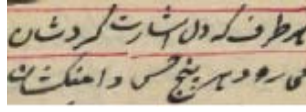 هر طرف که دل اشارت کردشان
می رود هر پنج حس دامنکشان